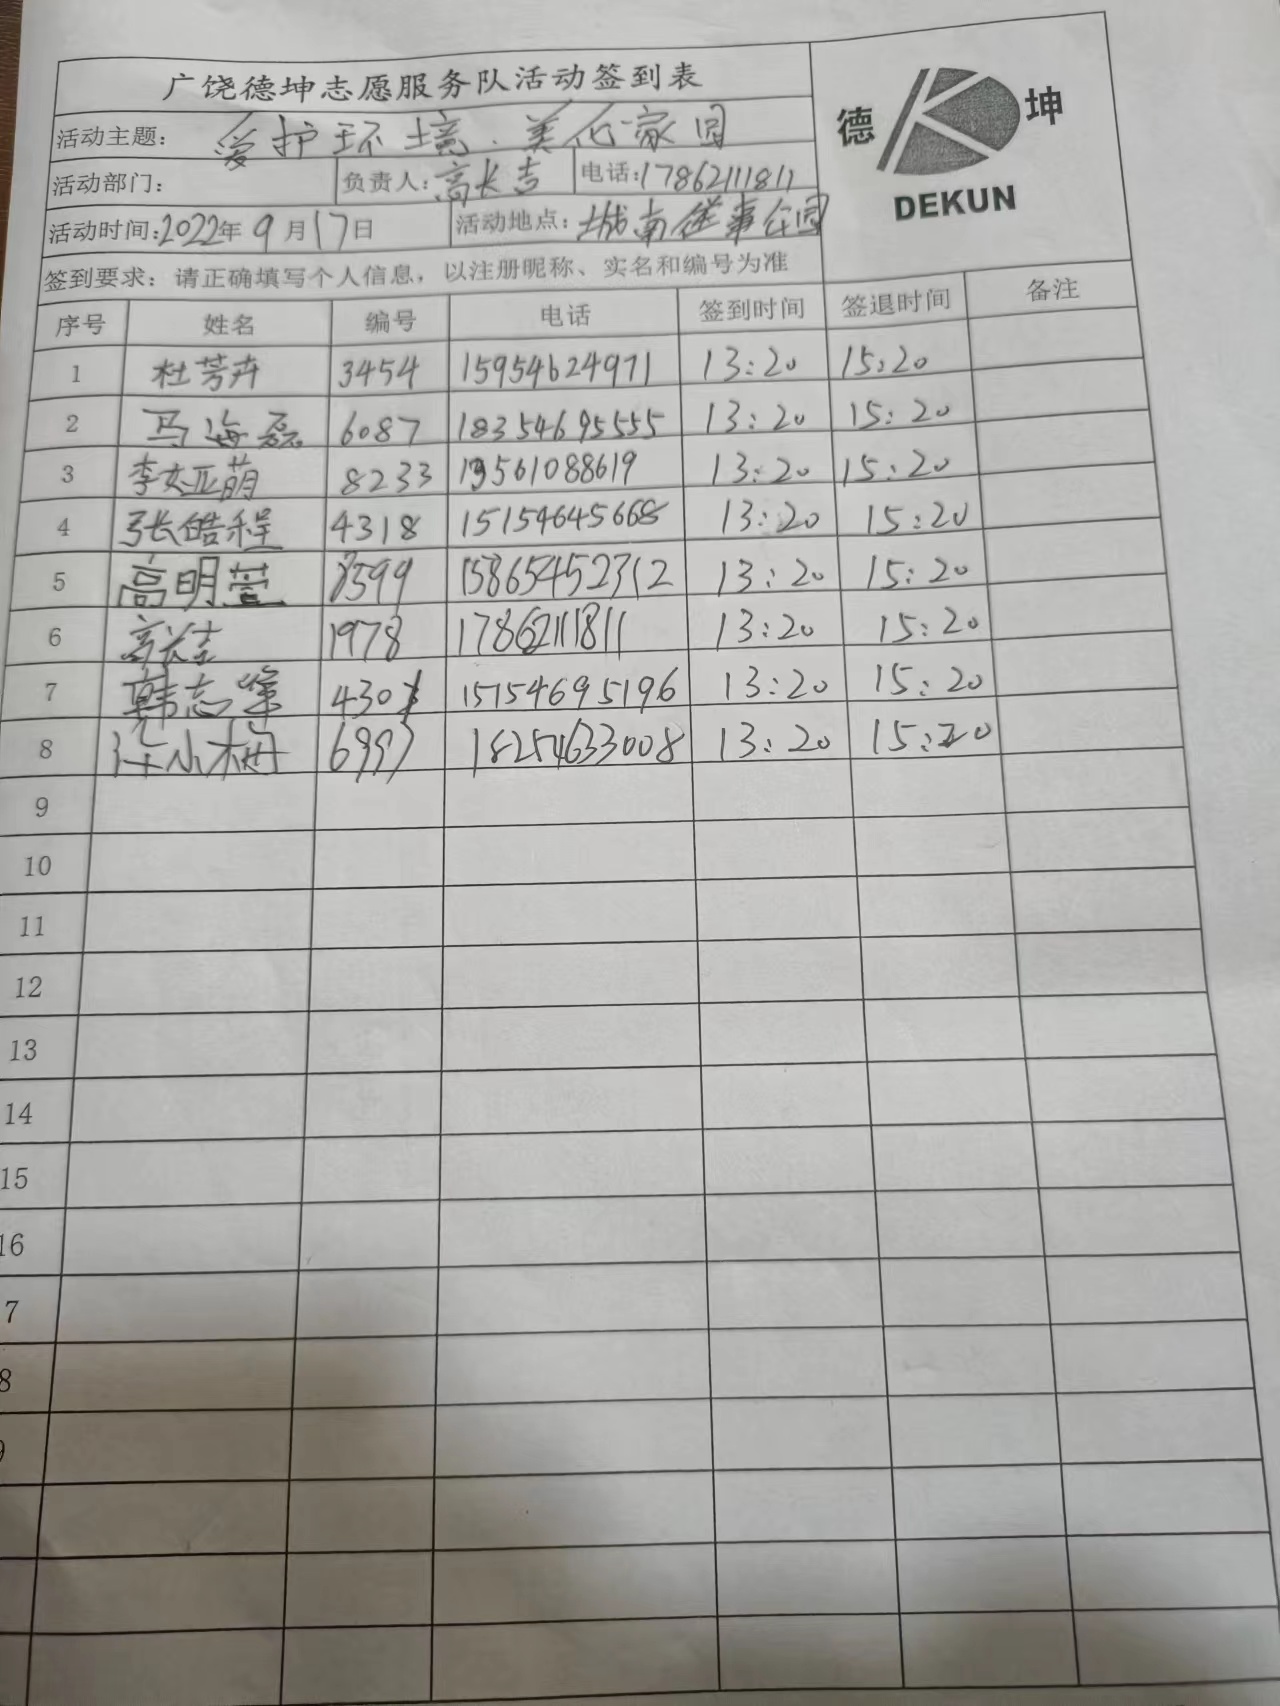 广饶德坤志愿服务队活动签到表
德 坤
DEKUN
活动主题： 爱护环境·美化家园
活动部门： 负责人：高长吉 电话：17862111811
活动时间：2022年9月17日 活动地点：城南 事 园
签到要求：请正确填写个人信息，以注册昵称、实名和编号为准
序号 姓名 编号 电话 签到时间 签退时间 备注
1 杜芳卉 3454 15954624971 13:20 15:20
2 马海磊 6087 18354695555 13:20 15:20
3 李 亚萌 8233 561088619 13:20 15:20
4 张皓程 4318 15154645668 13:20 15:20
5 高明萱 599 15865452312 13:20 15:20
6 高长吉 1978 17862111811 13:20 15:20
7 韩志 430 15154695196 13:20 15:20
8 小梅 18254633008 13:20 15:20
9
10
11
12
13
14
15
16
7
8
9